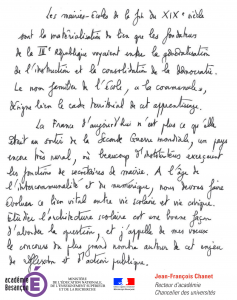 Les mairies-écoles de la fin du XIXe siècle
sont la matérialisation du lien que les fondateurs
de la IIIe République voyaient entre la généralisation
de l'instruction et la consolidation de la démocratie.
Le nom familier de l'École, « la communale »,
désigne bien le cadre territorial de cet apprentissage.
La France d'aujourd'hui n'est plus ce qu'elle
était au sortir de la Seconde Guerre mondiale, un pays
encore très rural, où beaucoup d'instituteurs exerçaient
les fonctions de secrétaires de mairie. À l'âge de
l'intercommunalité et du numérique, nous devons faire
évoluer ce lien vital entre vie scolaire et vie civique.
Étudier l'architecture scolaire est une bonne façon
d'aborder la question, et j'appelle de mes vœux
le concours du plus grand nombre autour de cet enjeu
de réflexion et d'action publique.
académie
Besançon
MINISTÈRE
DE L'ÉDUCATION NATIONALE,
DE L'ENSEIGNEMENT SUPÉRIEUR
ET DE LA RECHERCHE
Jean-François Chanet
Recteur d'académie
Chancelier des universités